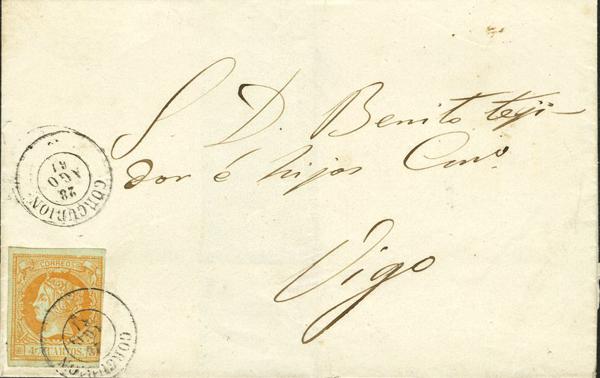 S D. Benito teji-
dor é hijos
Vigo
CORCUBION
28
AGO
61
CORREOS
4 CUARTOS
CORCUBION
AGO